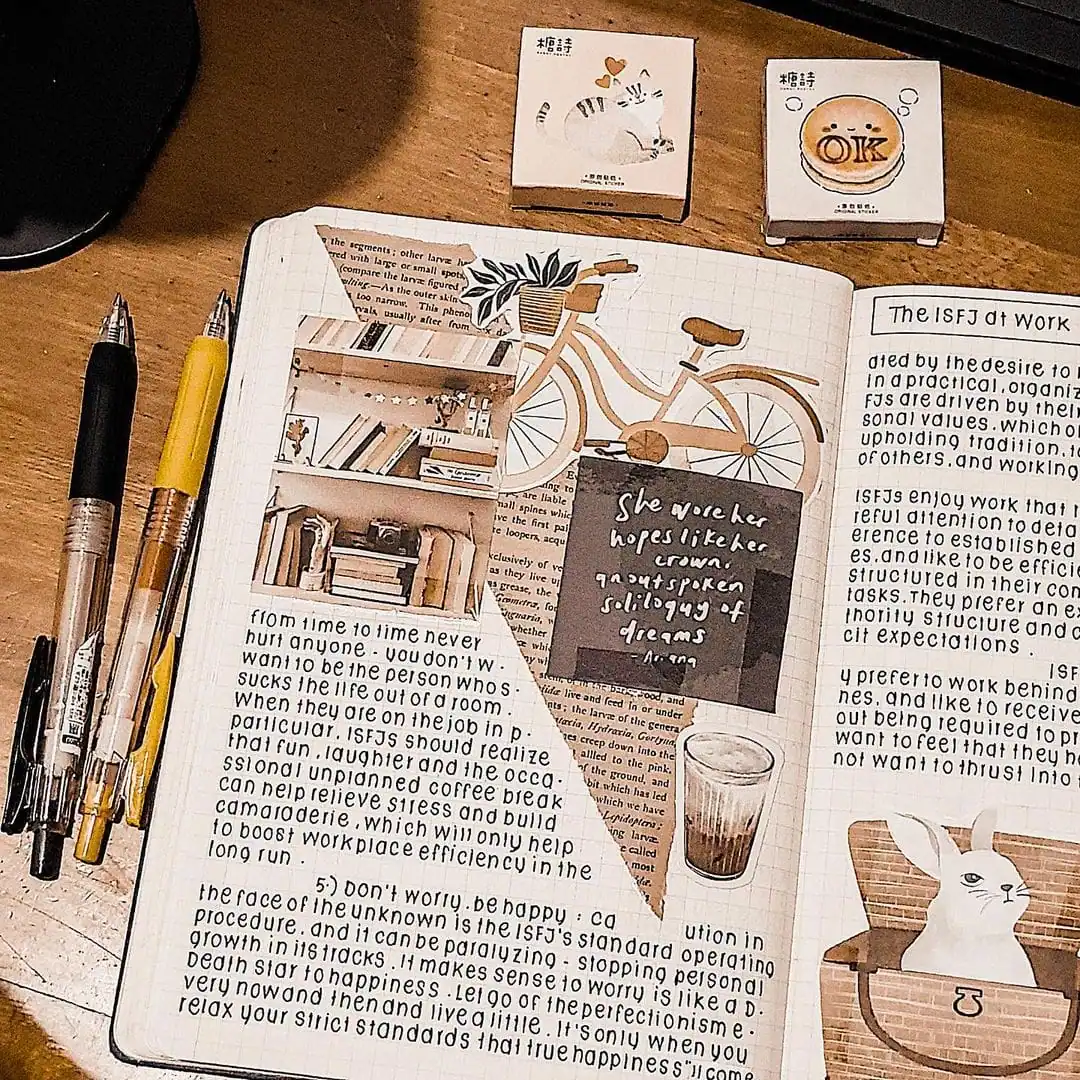 糖詩
ORIGINAL STICKER
糖詩
OK
ORIGINAL STICKER
the segments; other larvæ
red with large or small spots
(compare the larvæ figured
olting.—As the outer skin
too narrow. This pheno
vals, usually after from
She wore her
hopes like her
crown,
an outspoken
soliloquy of
dreams
- Ariana
are liable
all spines which
ve the first pal
e loopers, acqu
xclusively of ve
as they live up
s grease, the
Geometræ, fo
nguaria,
whether
live and feed in or under
ts; the larvæ of the genera
taxia, Hydraxia, Gortyna
nes creep down into the
allied to the pink,
f the ground, and
bit which has led
which we have
Lepidoptera,
ing larvæ
e called
most
from time to time never
hurt anyone - you don't w-
want to be the person who s-
sucks the life out of a room.
When they are on the job in p-
particular, ISFJs should realize
that fun, laughter and the occa-
ssional unplanned coffee break
can help relieve stress and build
camaraderie, which will only help
to boost workplace efficiency in the
long run.
5:) Don't worry, be happy : ca ution in
the face of the unknown is the ISFJ's standard operating
procedure, and it can be paralyzing - stopping personal
growth in its tracks. It makes sense to worry is like a D-
Death Star to happiness. Let go of the perfectionism e-
very now and then and live a little. It's only when you
relax your strict standards that true happiness"ll come
The ISFJ at Work
ated by the desire to
in a practical, organiz
FJs are driven by their
sonal values, which of
upholding tradition, ta
of others, and working
ISFJs enjoy work that
reful attention to deta
erence to established
es, and like to be efficie
structured in their com
tasks. They prefer an ex
thority structure and c
cit expectations.
ISF
y prefer to work behind
nes, and like to receive
out being required to pr
want to feel that they h
not want to thrust into